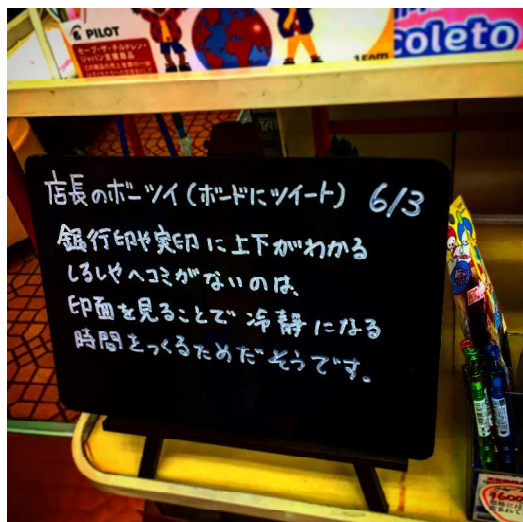 PILOT
セーブ・ザ・チルドレン・
ジャパン支援商品
coleto
店長のボーツイ(ボードにツイート) 6/3
銀行印や実印に上下がわかる
しるしやヘコミがないのは、
印面を見ることで冷静になる
時間をつくるためだそうです。